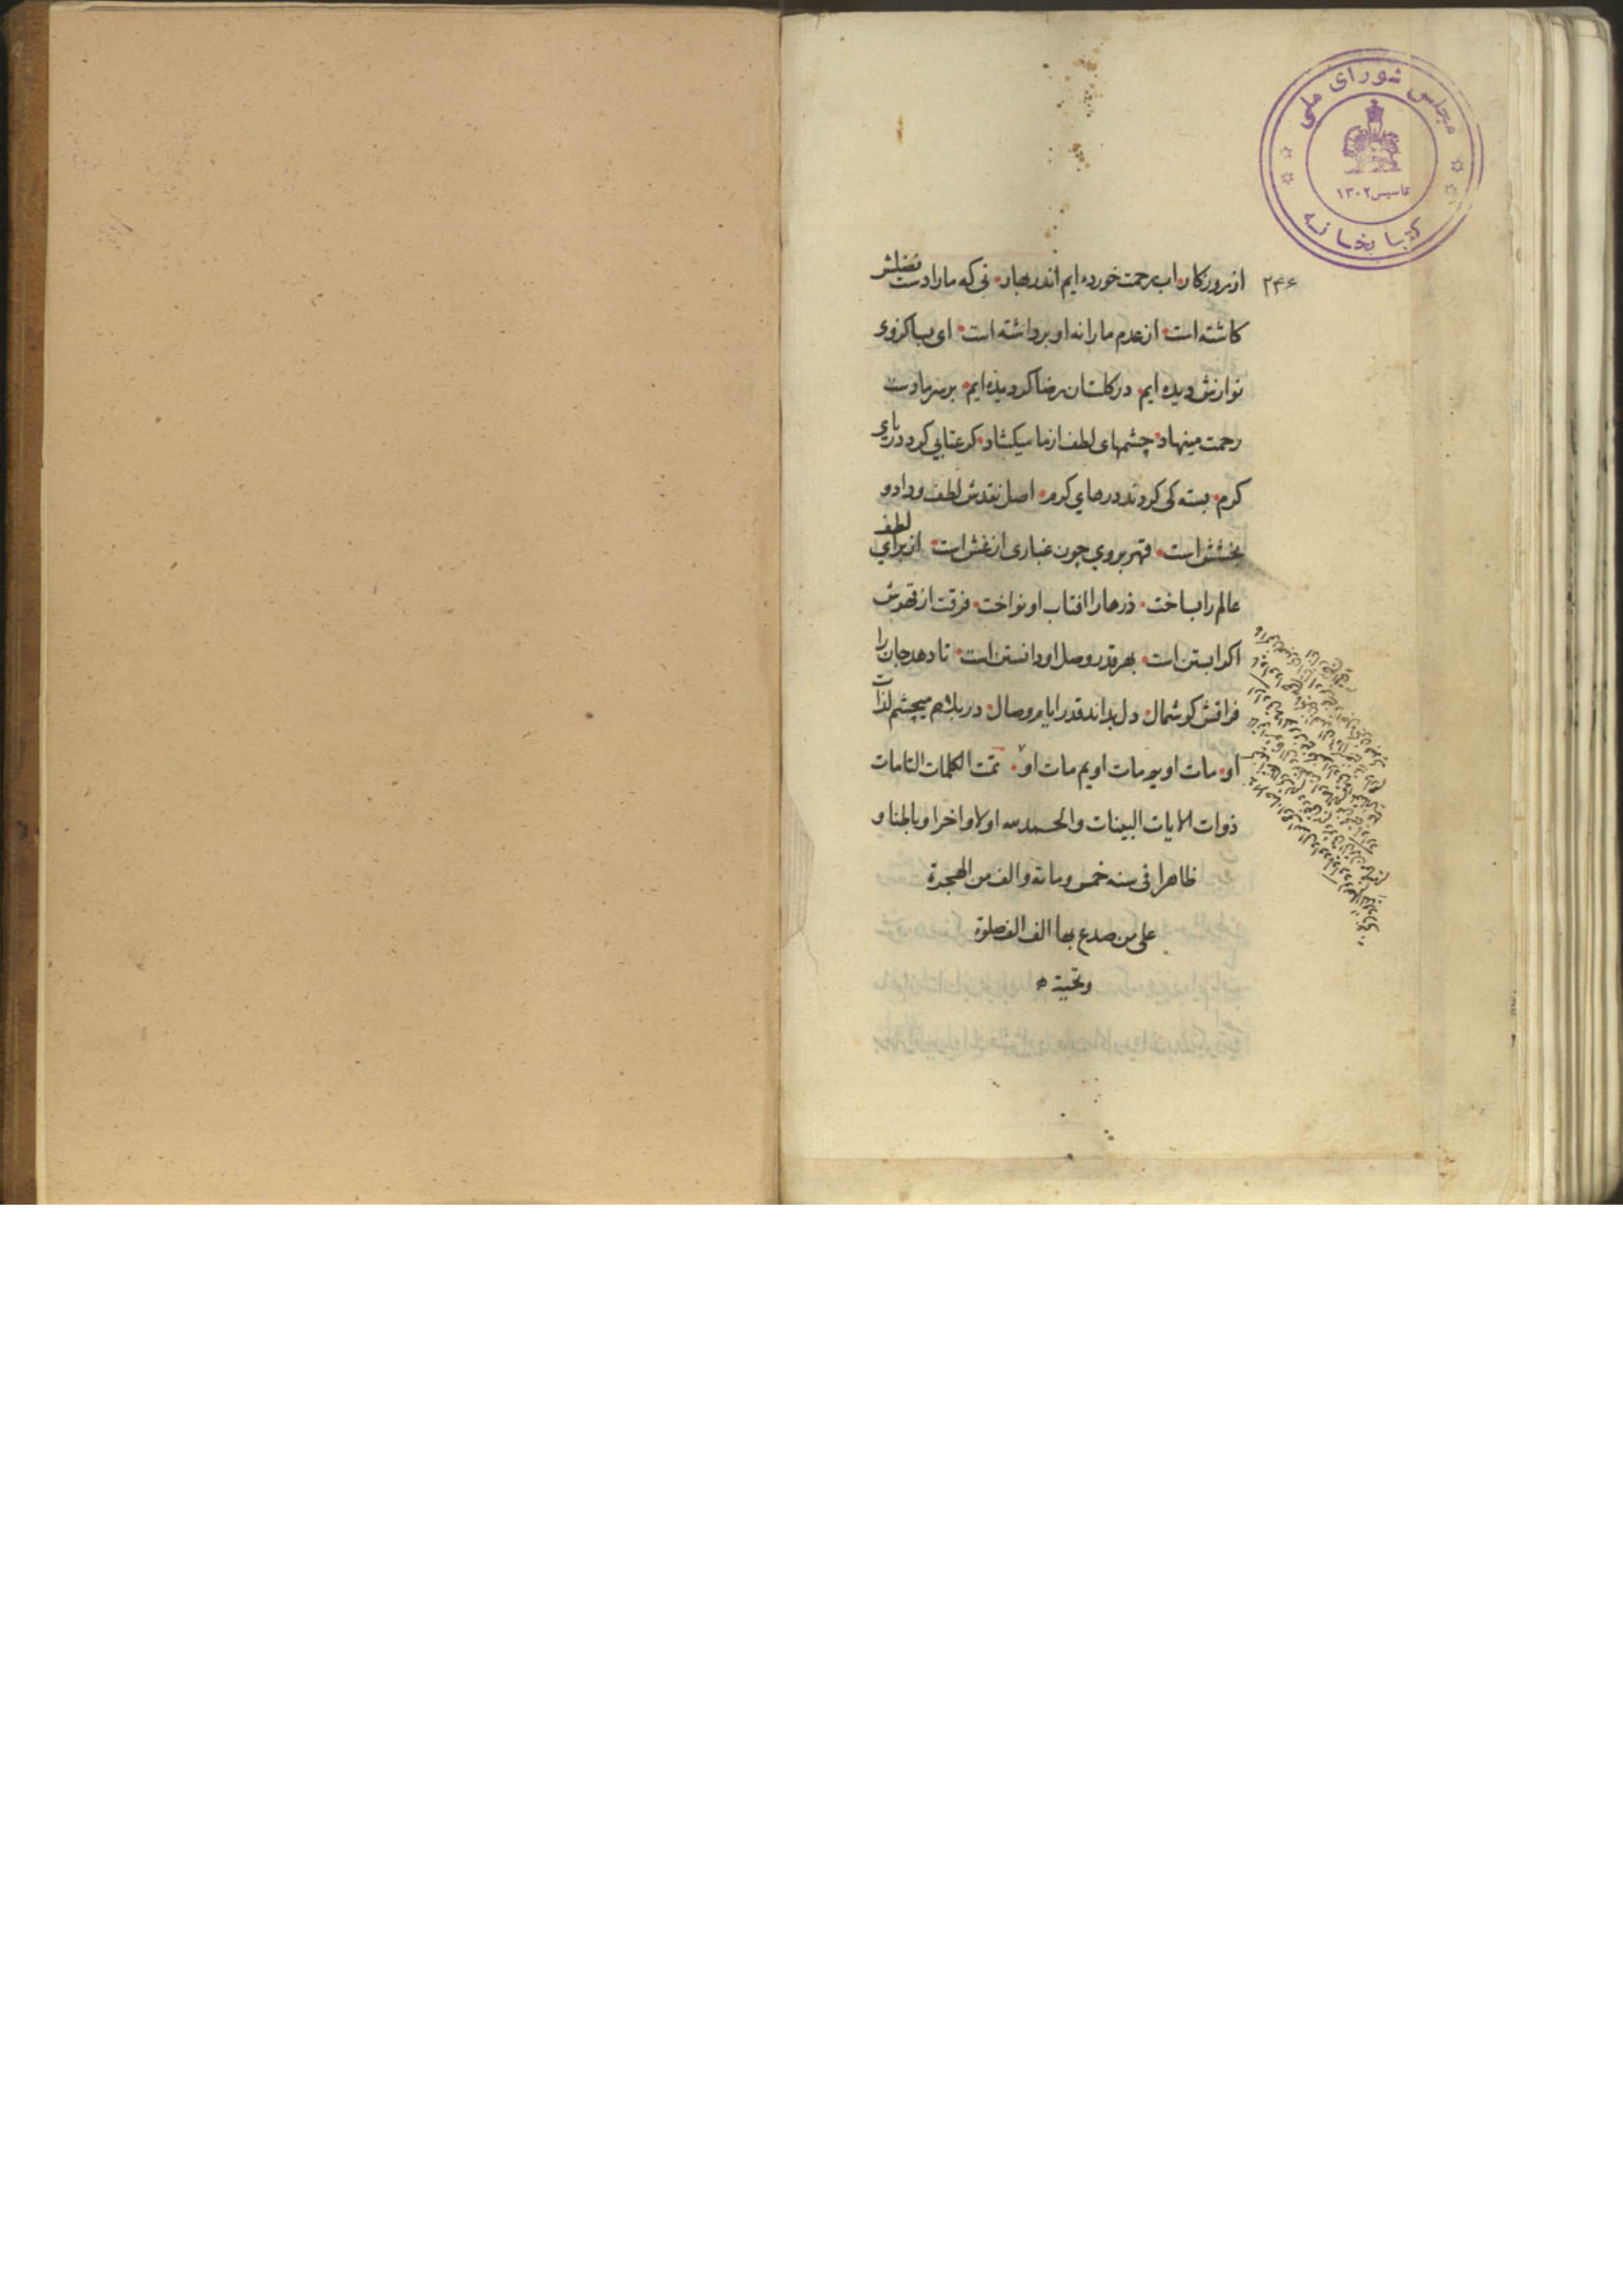 مجلس شورای ملی
تاسیس ۱۳۰۲
کتابخانه
۲۴۶
از روزکار • اب رحمت خورده ایم اندر بهار • نی که ما را دست فضلش
کاشته است • از عدم ما را نه او برداشته است • ای بسا کز وی
نوازش دیده ایم • در کلستان رضا کردیده ایم • بر سر ما دست
رحمت مینهاد • چشمهای لطف از ما میکشاد • کر عتابی کرد دریای
کرم • بسته کی کردند درهای کرم • اصل نقدش لطف و داد و
بخشش است • قهر بروی چون غباری از غش است • از برای لطف
عالم را بساخت • ذرها را افتاب او نواخت • فرقت از قهرش
اکر ابستن است • بهر قدر وصل او دانستن است • تا دهد جان را
فراقش کوشمال • دل بداند قدر ایام وصال • در بلا هم میچشم لذات
او • مات اویم مات اویم مات او • تمت الکلمات التامات
ذوات الایات البینات والحمد لله اولا واخرا وباطنا و
ظاهرا فی سنه خمس ومائه والف من الهجرة
علی من صدع بها الف الف صلوة
وتحیة